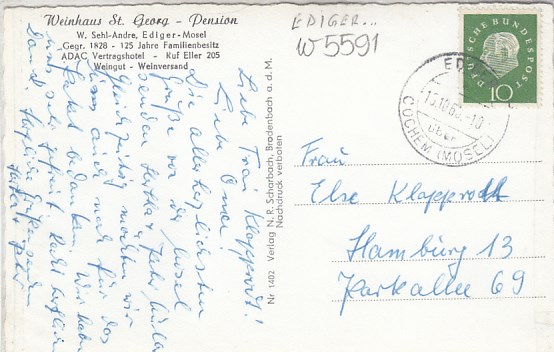 Weinhaus St. Georg - Pension
W. Sehl-Andre, Ediger-Mosel
Gegr. 1828 - 125 Jahre Familienbesitz
ADAC Vertragshotel - Ruf Eller 205
Weingut - Weinversand
EDIGER...
W 5591
DEUTSCHE BUNDESPOST
10
EDI
über
COCHEM (MOSEL)
Liebe Frau Klapproth!
Liebe Oma!
Die allerherzlichsten
Grüße von der Mosel
senden
Gleichzeitig möchten wir
uns auch noch für das
Paket bedanken. Wir haben
uns sehr gefreut. Recht herzlichen
Dank!
Nr 1402 Verlag N. R. Scharbach, Brodenbach a. d. M.
Nachdruck verboten
Frau
Else Klapproth
Hamburg 13
Parkallee 69